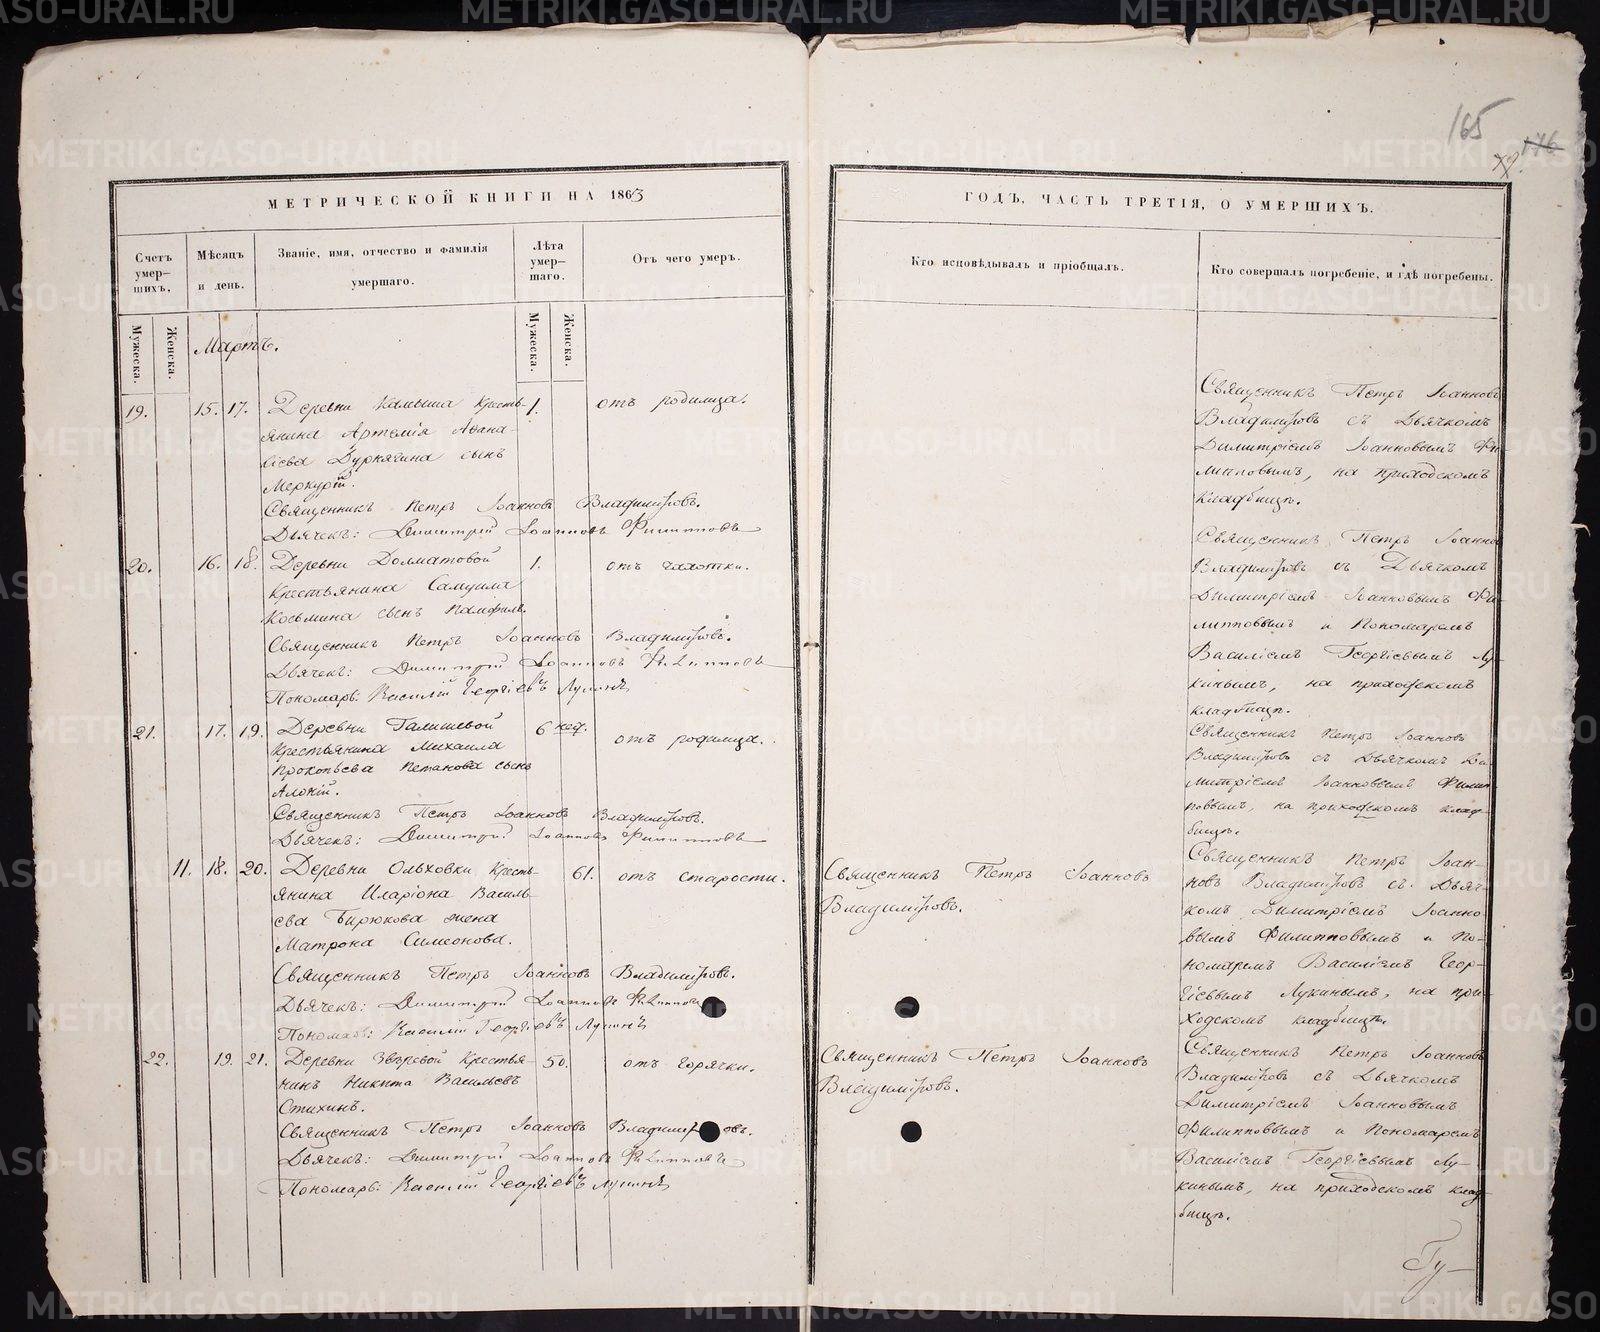 165
176
МЕТРИЧЕСКОЙ КНИГИ НА 1863
ГОДЪ, ЧАСТЬ ТРЕТІЯ, О УМЕРШИХЪ.
Счетъ умер-шихъ.
Мѣсяцъ и день.
Званіе, имя, отчество и фамилія умершаго.
Лѣта умер-шаго.
Отъ чего умеръ.
Кто исповѣдывалъ и пріобщалъ.
Кто совершалъ погребеніе, и гдѣ погребены.
Мужеска.
Женска.
Мартъ.
Мужеска.
Женска.
19. 15. 17. Деревни Камыша кресть- 1. отъ родимца.
янина Артемія Аѳана-
сіева Дурнягина сынъ
Меркурій.
Священникъ Петръ Іоанновъ Владиміровъ.
Дьячекъ: Димитрій Іоанновъ Филипповъ
Священникъ Петръ Іоанновъ
Владиміровъ съ Дьячкомъ
Димитріемъ Іоанновымъ Фи-
липповымъ, на приходскомъ
кладбищѣ.
20. 16. 18. Деревни Долматовой 1. отъ чахотки.
Крестьянина Самуила
Козьмина сынъ Памфилъ.
Священникъ Петръ Іоанновъ Владиміровъ.
Дьячекъ: Димитрій Іоанновъ Филипповъ
Пономарь: Василій Георгіевъ Лукинъ
Священникъ Петръ Іоаннов
Владиміровъ съ Дьячкомъ
Димитріемъ Іоанновымъ Фи-
липповымъ и Пономаремъ
Василіемъ Георгіевымъ Лу-
кинымъ, на приходскомъ
кладбищѣ.
21. 17. 19. Деревни Галишевой 6 нед. отъ родимца.
Крестьянина Михаила
Прокопьева Петанова сынъ
Алексій.
Священникъ Петръ Іоанновъ Владиміровъ.
Дьячекъ: Димитрій Іоанновъ Филипповъ
Священникъ Петръ Іоанновъ
Владиміровъ съ Дьячкомъ Ди-
митріемъ Іоанновымъ Филип-
повымъ, на приходскомъ клад-
бищѣ.
11. 18. 20. Деревни Ольховки кресть- 61. отъ старости.
янина Иларіона Василь-
ева Бирюкова жена
Матрона Симеонова.
Священникъ Петръ Іоанновъ Владиміровъ.
Дьячекъ: Димитрій Іоанновъ Филиппов
Пономарь: Василій Георгіевъ Лукинъ
Священникъ Петръ Іоанновъ
Владиміровъ.
Священникъ Петръ Іоан-
новъ Владиміровъ съ Дьяч-
комъ Димитріемъ Іоанно-
вымъ Филипповымъ и По-
номаремъ Василіемъ Геор-
гіевымъ Лукинымъ, на при-
ходскомъ кладбищѣ.
22. 19. 21. Деревни Звѣревой Крестья- 50. отъ горячки.
нинъ Никита Васильевъ
Стихинъ.
Священникъ Петръ Іоанновъ Владиміровъ.
Дьячекъ: Димитрій Іоанновъ Филипповъ
Пономарь: Василій Георгіевъ Лукинъ
Священникъ Петръ Іоанновъ
Владиміровъ.
Священникъ Петръ Іоанновъ
Владиміровъ съ Дьячкомъ
Димитріемъ Іоанновымъ
Филипповымъ и Пономаремъ
Василіемъ Георгіевымъ Лу-
кинымъ, на приходскомъ клад-
бищѣ.
METRIKI.GASO-URAL.RU